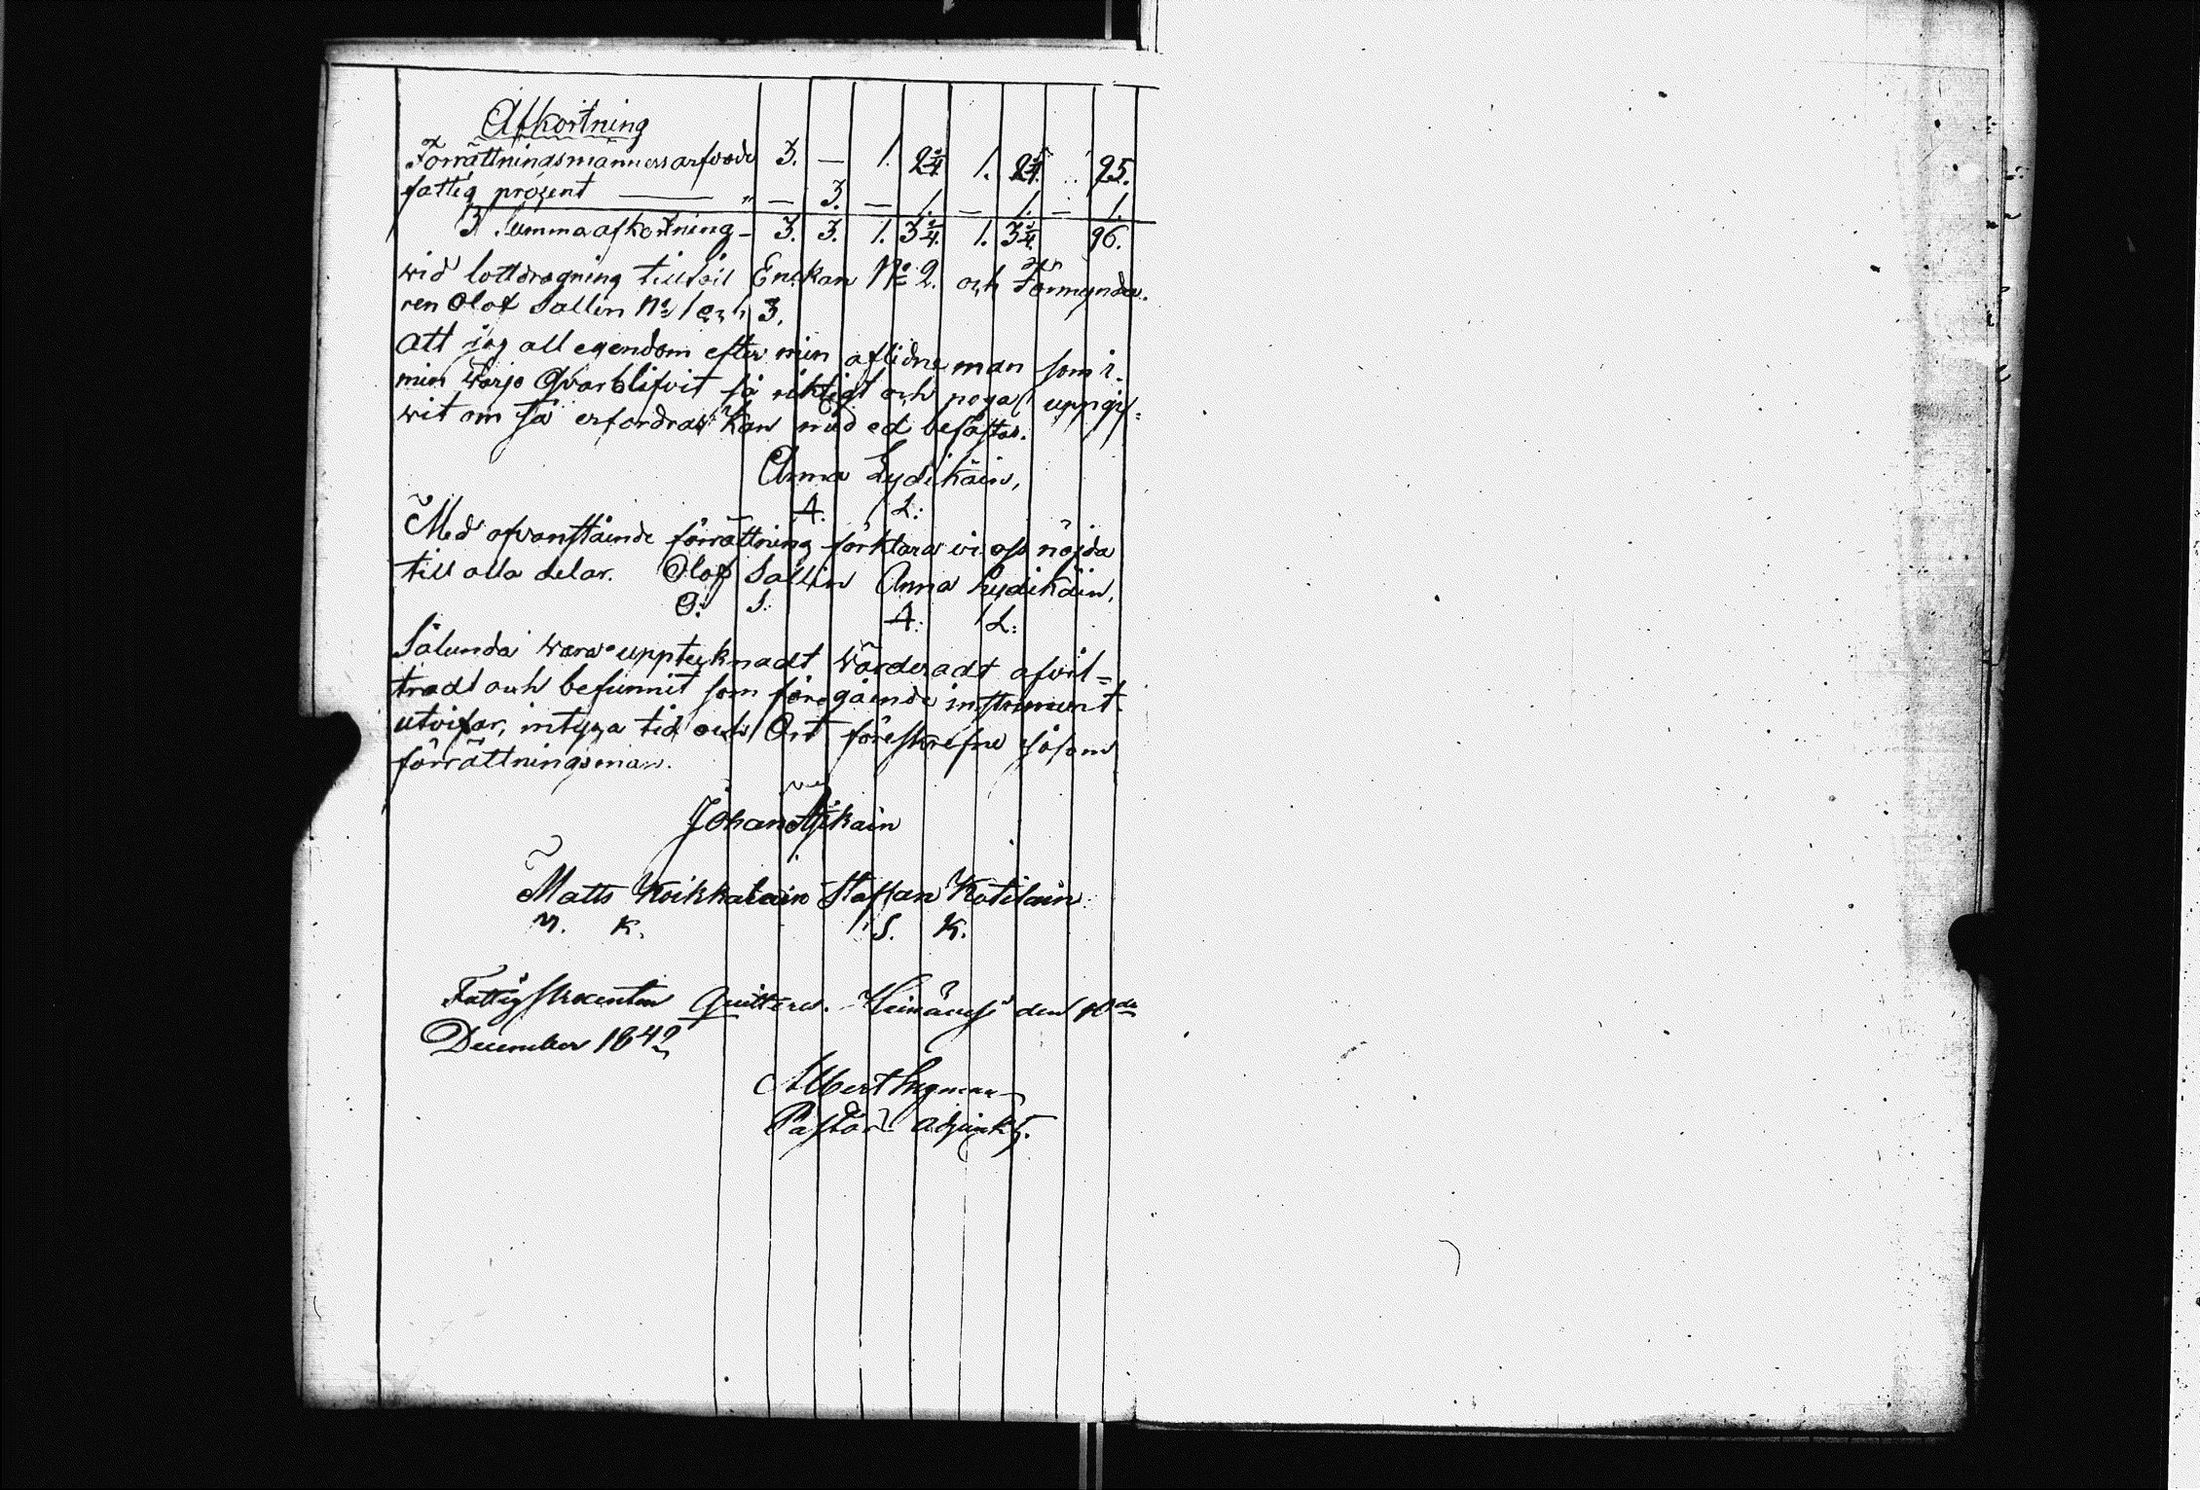 Afkortning
Förrättningsmännens arfvode 3. — 1. 2 3/4. 1. 2 3/4. 95.
fattig prozent — " — 3. — 1. — 1. — 1.
Summa afkortning — 3. 3. 1. 3 3/4. 1. 3 3/4. 96.
wid lottdragning tillföll Enckan No 2. och Förmynda-
ren Olof Sallin No 1 och 3.
att jag all egendom efter min aflidne man som i
min wärjo qvarblifvit så riktigt och noga uppgif-
wit om så erfordras kan med ed befästas.
Anna Lydikäin,
A. L:
Med ofvanstående förrättning förklara vi oss nöjda
till alla delar. Olof Sallin Anna Lydikäin.
O: S: A: L:
Sålunda wara upptecknadt wärderadt afvit-
tradt och befunnit som föregående instrument
utvisar, intyga tid och Ort föreskrefne såsom
förrättningsmän.
Johan
Matts Koikkalain Staffan Kotilain
M. K. S. K.
Fattigprocenten quitteras. den 10de
December 1842
Albert Ingman
Pastors adjunkt.